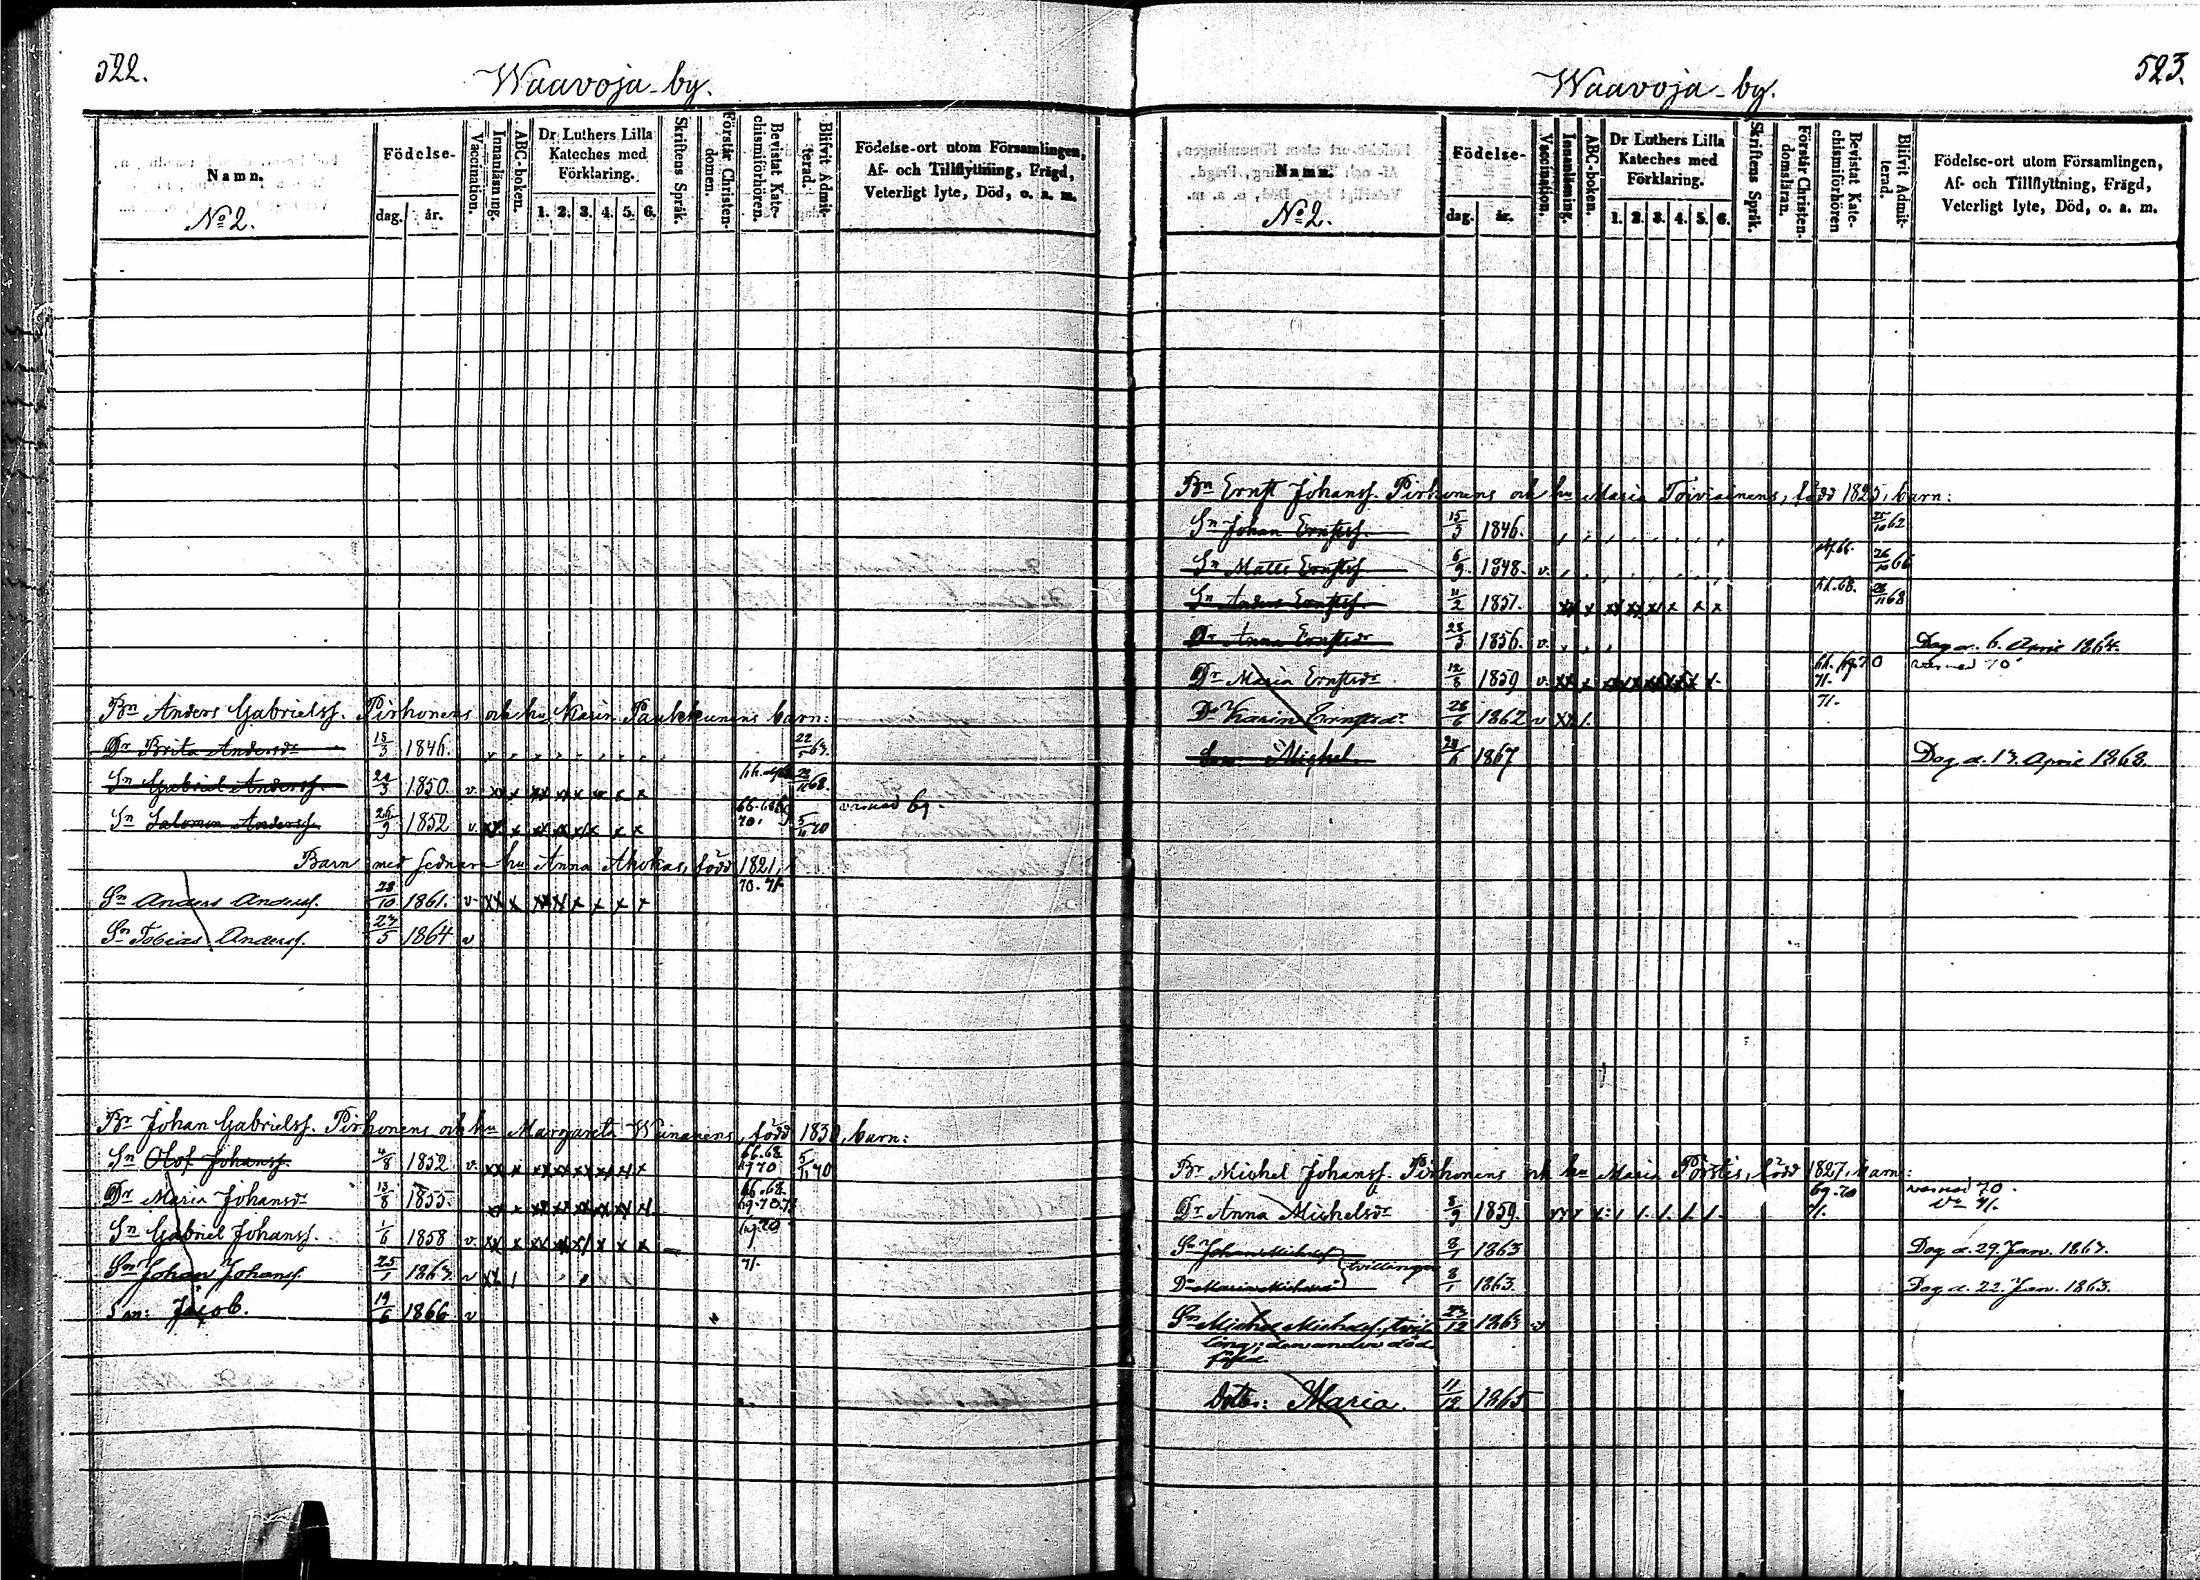 522.
Waavoja by.
Namn.
No 2.
Födelse-
dag. år.
Vaccination.
Innanläsning.
ABC-boken.
Dr Luthers Lilla
Kateches med
Förklaring.
1. 2. 3. 4. 5. 6.
Skriftens Språk.
Förstår Christen-
domen.
Bevistat Kate-
chismiförhören.
Blifvit Admit-
terad.
Födelse-ort utom Församlingen,
Af- och Tillflyttning, Frägd,
Veterligt lyte, Död, o. a. m.
Bn Anders Gabrielss. Pirhonens och hu Karin Paukkunens barn:
Dr Brita Andersdr 15/3 1846.
Sn Gabriel Anderss. 1850. v.
Sn Salomon Anderss. 1852 v. 5/11 70
Barn med sednare hu Anna Ahokas, född 1821,
Sn Anders Anderss. 28/10 1861. v 70. 71.
Sn Tobias Anderss. 27/5 1864 v
Br Johan Gabrielss. Pirhonens och hu Margareta Wänänens, född 1830, barn:
Sn Olof Johanss. 4/8 1852 v. 66.68 69 70 5/11 70
Dr Maria Johansdr 13/8 1855. 66.68. 69.70.71
Sn Gabriel Johanss. 1/6 1858 v. 69.70 71.
Sn Johan Johanss. 25/1 1863 v
Son: Jacob. 19/6 1866 v
523.
Waavoja by.
Namn.
No 2.
Födelse-
dag. år.
Vaccination.
Innanläsning.
ABC-boken.
Dr Luthers Lilla
Kateches med
Förklaring.
1. 2. 3. 4. 5. 6.
Skriftens Språk.
Förstår Christen-
domsläran.
Bevistat Kate-
chismiförhören
Blifvit Admit-
terad.
Födelse-ort utom Församlingen,
Af- och Tillflyttning, Frägd,
Veterligt lyte, Död, o. a. m.
Bn Ernst Johanss. Pirhonens och hu Maria Toiviainens, född 1825, barn:
Sn Johan Ernstss. 15/3 1846. 25/10 62
Sn Matts Ernstss. 6/9 1848. v. 26/10 66
Sn Anders Ernstss. 11/2 1851. 68
Dr Anna Ernstsdr 1856. v. Dog d. 6 April 1864.
Dr Maria Ernstsdr 12/8 1859 v. 71.
Dr Karin Ernstsdr 28/6 1862 v 71.
Son: Michel. 1867 Dog d. 13. April 1868.
Br Michel Johanss. Pirhonens och hu Maria Pöystis, född 1827, barn:
Dr Anna Michelsdr 8/9 1859. 69.70 71.
Sn Johan Michelss. 8/1 1863 Dog d. 29 Jan. 1863.
tvillingar
Dr Maria Michelsdr 8/1 1863. Dog d. 22. Jan. 1863.
Sn Michel Michelss., tvil- 1863 v
ling, den andra död-
född.
Dotter: Maria. 11/12 1865